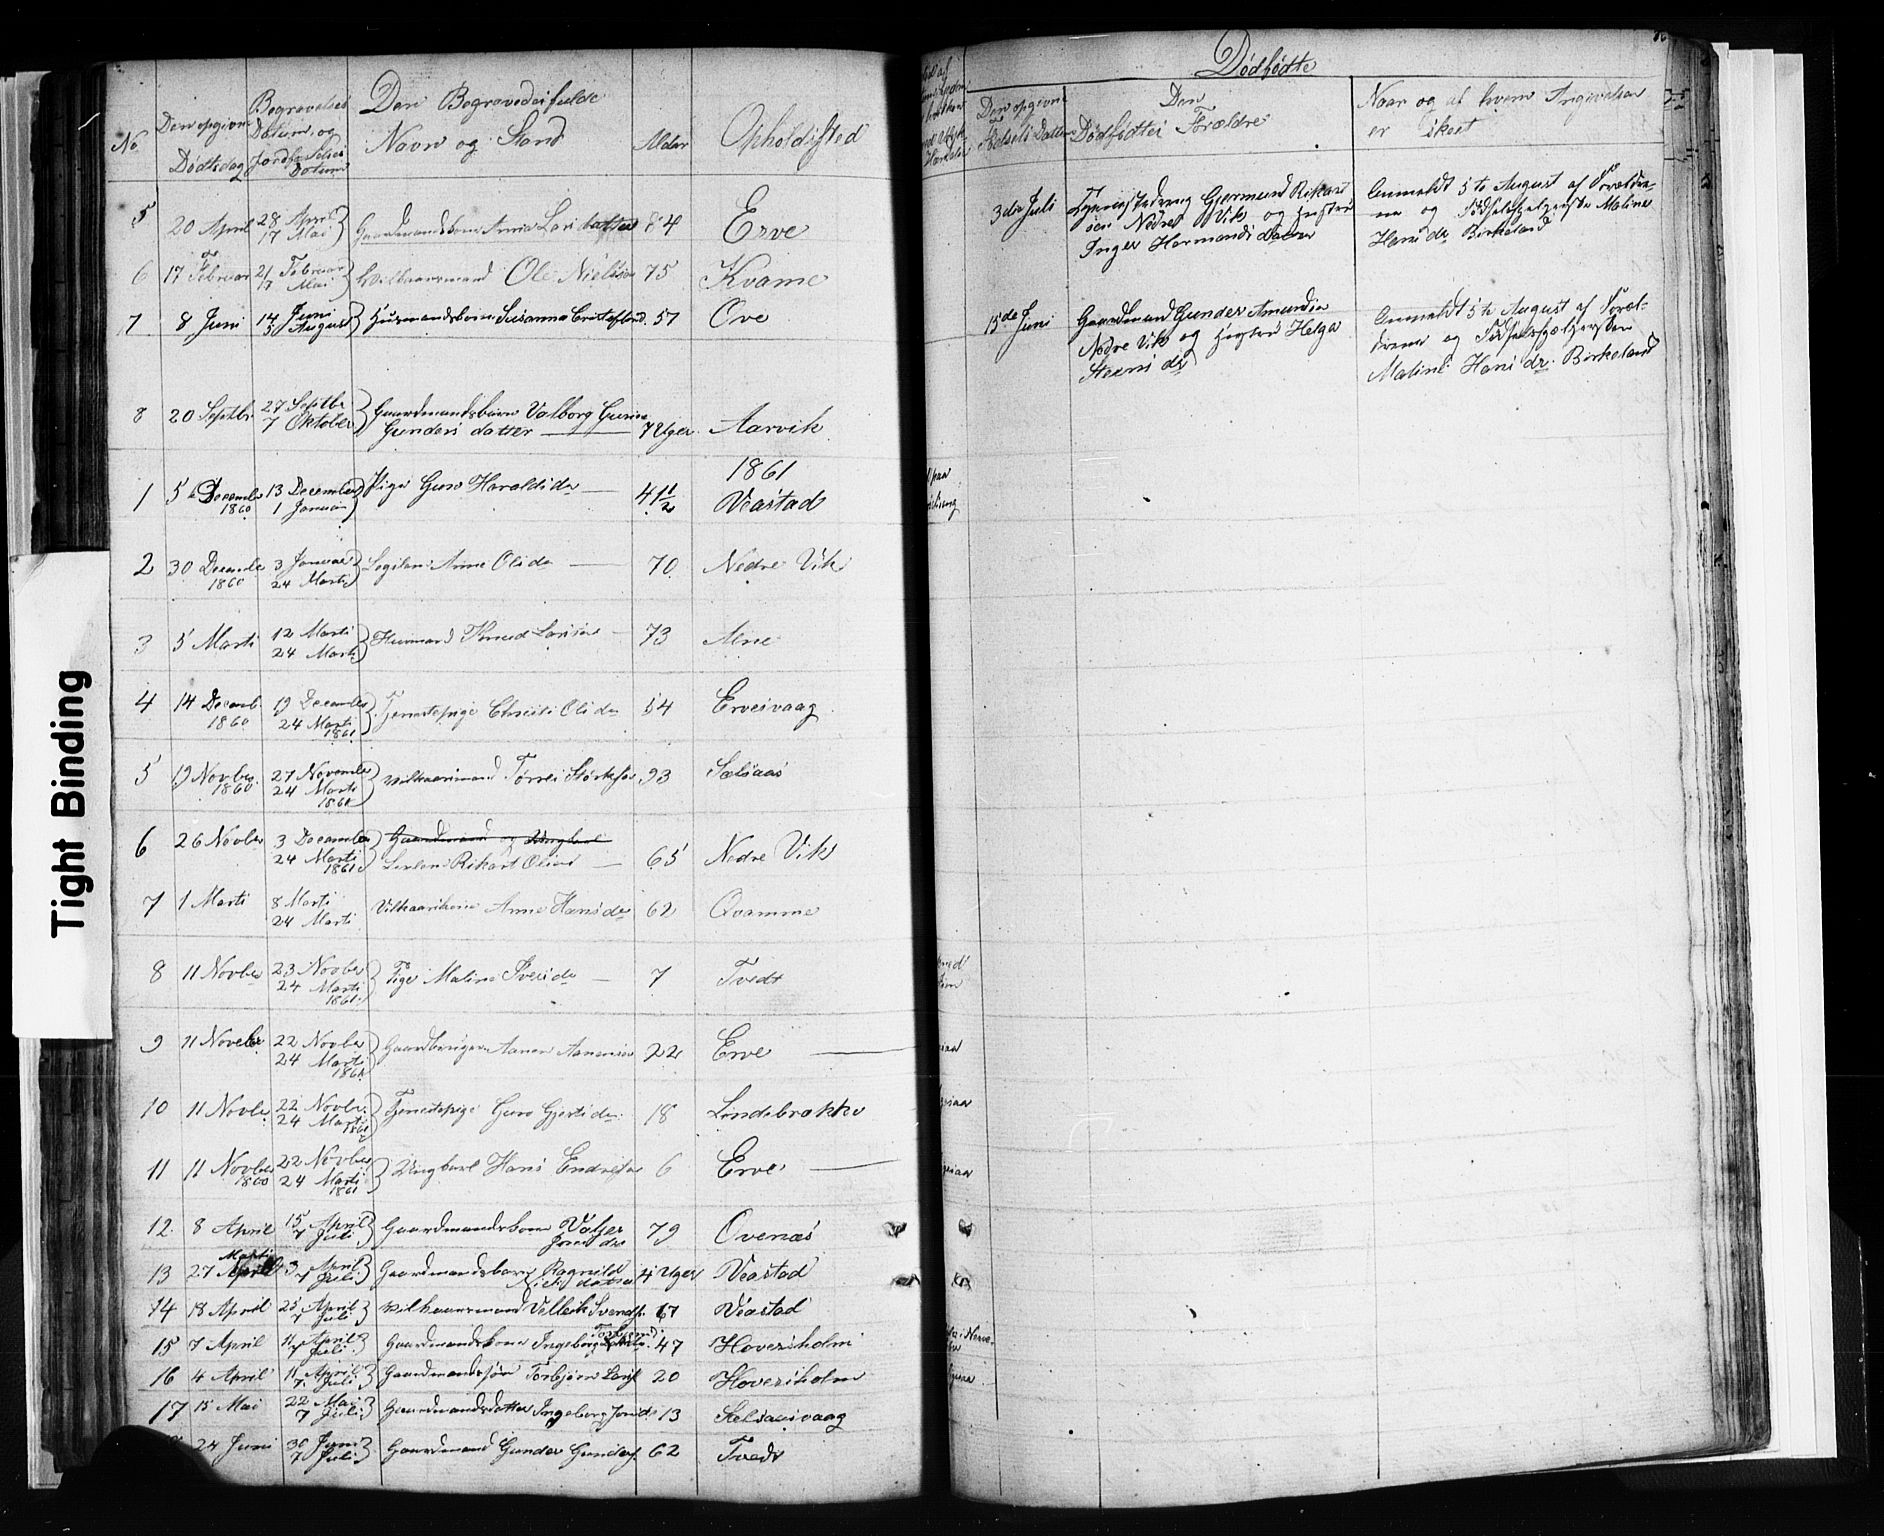 Tight Binding
No
Den opgivne Dødsdag
Begravelses Datum og Jordfæstelses Datum
Den Begravedes fulde Navn og Stand
Alder
Opholdssted
5 20 April 28 April 17 Mai Gaardmandskone Anna Lars datter 84 Erve
6 17 Februar 21 Februar 17 Mai Vilkaarsmand Ole Nielsen 75 Kvame
7 8 Juni 14 Juni 5 August Husmandskone Susanna 57 Ove
8 20 Septbr 27 Septbr 7 Oktober Gaardmandsbarn Valborg Gurine
Gunders datter 7 Uger Aarvik
1861
1 5 December 1860 13 December 1 Januar Pige Guro Haralds da 41 1/2 Veastad
2 30 Decembe 1860 3 Januar 24 Marts Anne Ols da 70 Nedre Vik
3 5 Marts 12 Marts 24 Marts Husmand Knud Larsen 73 Alne
4 14 Decemb. 1860 19 December 24 Marts 1861 Tjenestepige Christi Ols da 54 Ervesvaag
5 19 Novbe 1860 27 November 24 Marts 1861 Vilkaarsmand Tørres Størksen 93 Sælsaas
6 26 Novbe 3 December 24 Marts 1861 Gaardmand og Ungkarl
Rikart Olsen 65 Nedre Vik
7 1 Marts 8 Marts 24 Marts Vilkaarskone Anne Hans da 62 Qvamme
8 11 Novbe 23 Novbe 24 Marts 1861 Pige Maline Svens da 7 Tvedt
9 11 Novebe 22 Novbe 24 Marts 1861 Gaardbruger Aanen Aanensen 22 Erve
10 11 Novbe 22 Novbe. 24 Marts 1861 Tjenestepige Guro Gjerts da. 18 Londebrække
11 11 Novbe 1860 22 Novbe 24 Marts 1861 Ungkarl Hans Endresen 6 Erve
12. 8 April 15 April 7 Juli Gaardmandskone 79 Ovenæs
13 27 Marts April 3 April 7 Juli Gaardmandsbarn Ragnild datter 4 Uger Veastad
14 18 April 25 April 7 Juli Vilkaarsmand Vellech Svends. 67 Veastad
15 7 April 11 April 7 Juli Gaardmandskone Ingeborg 47 Hoversholm
16 4 April 11 April 7 Juli Gaardmandssøn Torbjørn Lars. 20 Hoversholm
17 15 Mai 22 Mai 7 Juli Gaardmandsdatter Ingeborg 13 Selsaasvaag
24 Juni 30 Juni 7 Juli Gaardmand Gunder Gunders. 62 Tvedt
Dødfødte
Den opgivne Fødsels Datum
Den Dødfødtes Forældre
Naar og af hvem Angivelsen er skeet
3die Juli
Tjenestedreng Gjermund Rikart
sen Nedre Vik og Hustru
Inger Harmands datter
Anmeldt 5te August af Foræld-
ene og Fødselshjelpersken Maline
Hans dr Birkeland
15de Juni
Gaardmand Gunder Amundsen
Nedre Vik og Hustru Helga
Steens dr
Anmeldt 5te August af Foræl-
drene og Fødselshjelpersken
Maline Hans dr. Birkeland